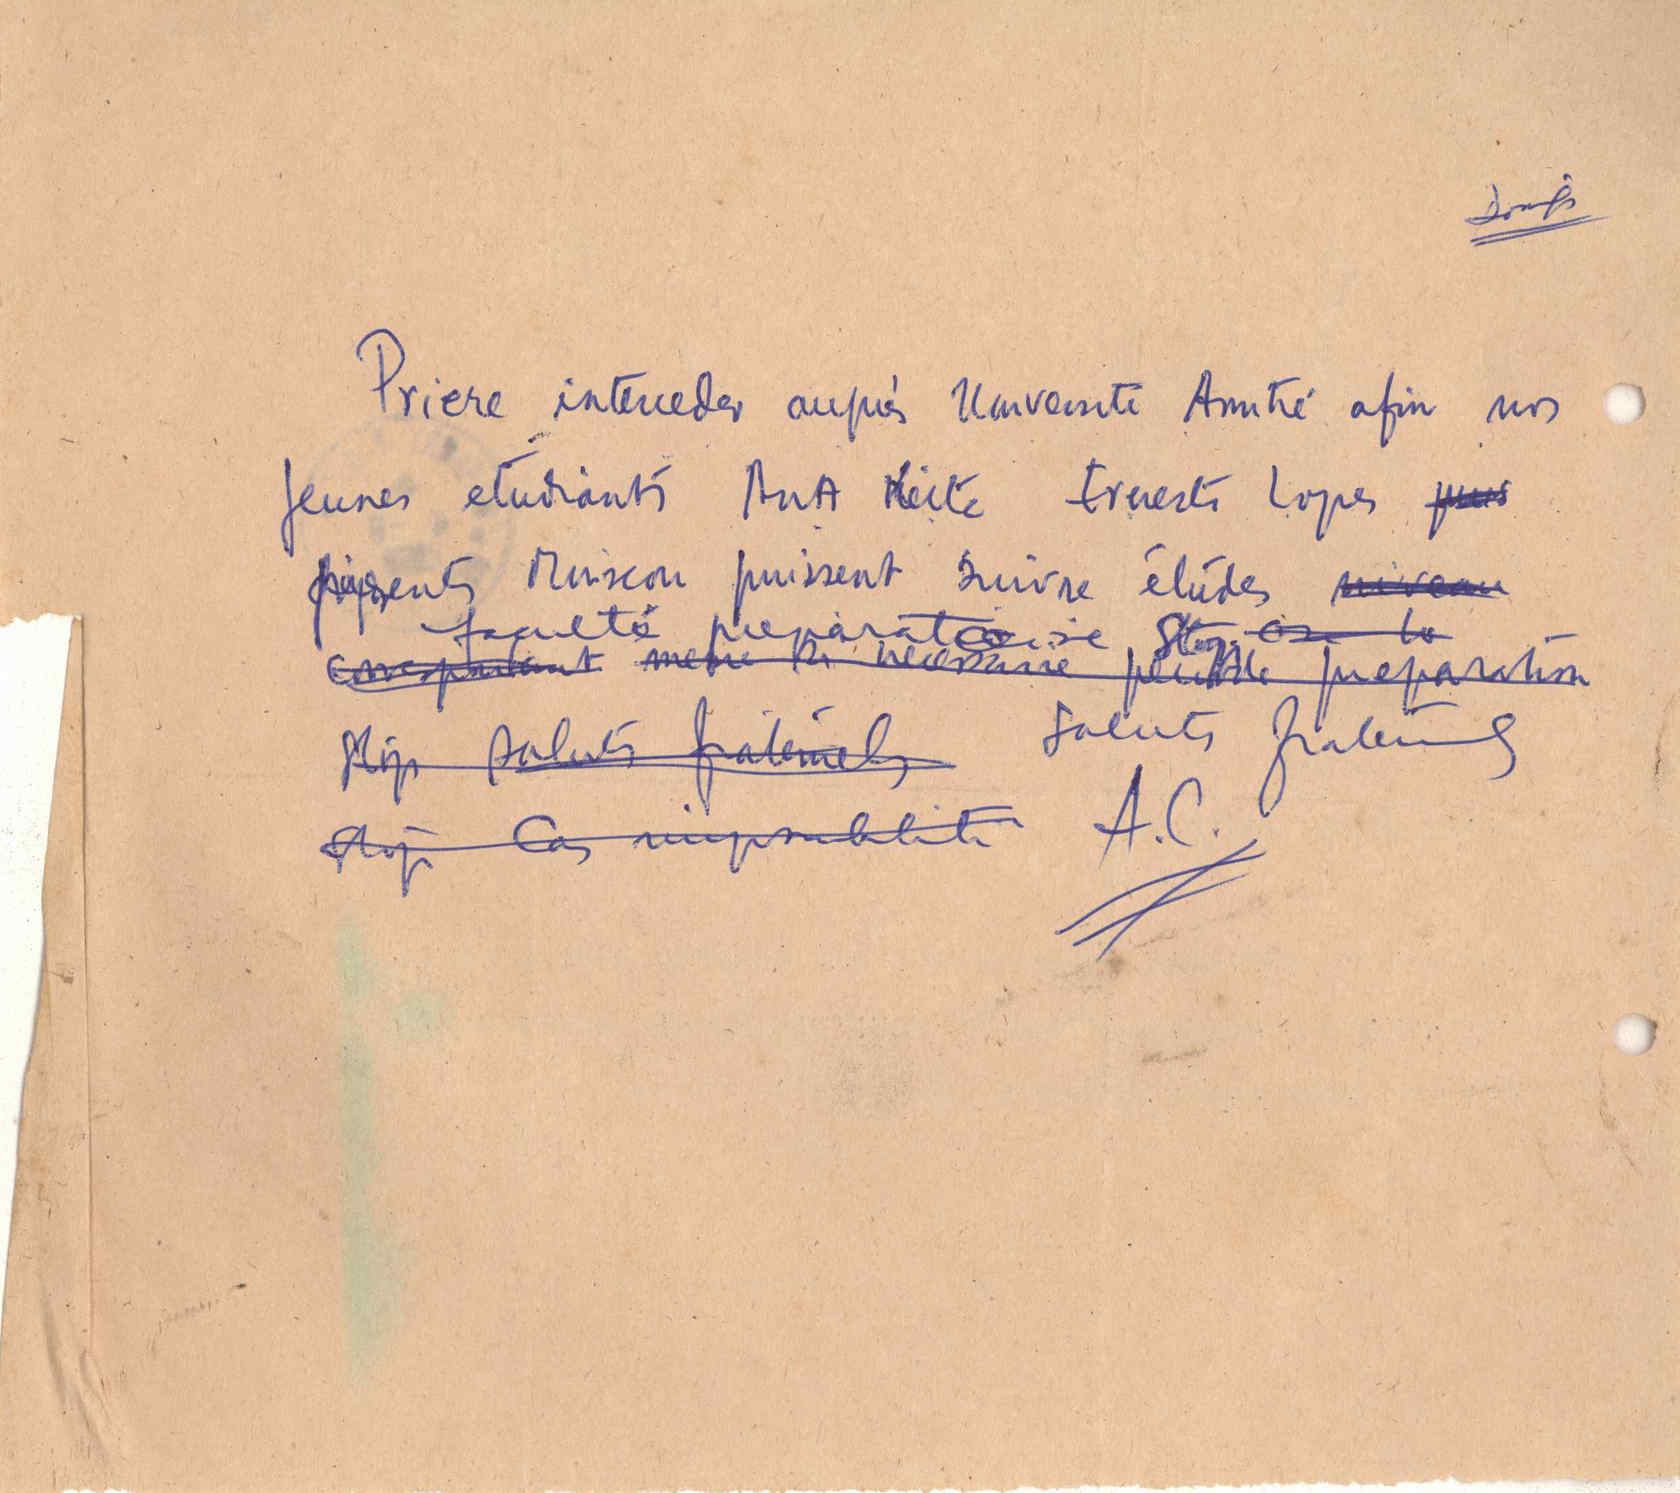 Priere interceder auprés Université Amitié afin nos
jeunes etudiants Lopes
présents Moscou puissent suivre études niveau
faculté preparatoire Stop
correspondant meme si necessaire preparation
Stop saluts fraternels saluts fraternels
Stop Cas impossibilité A.C.